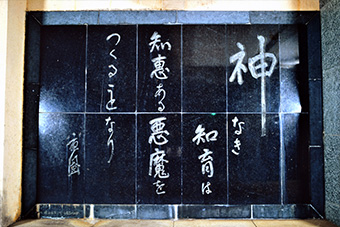 神なき
知育は
知恵ある悪魔を
つくることなり